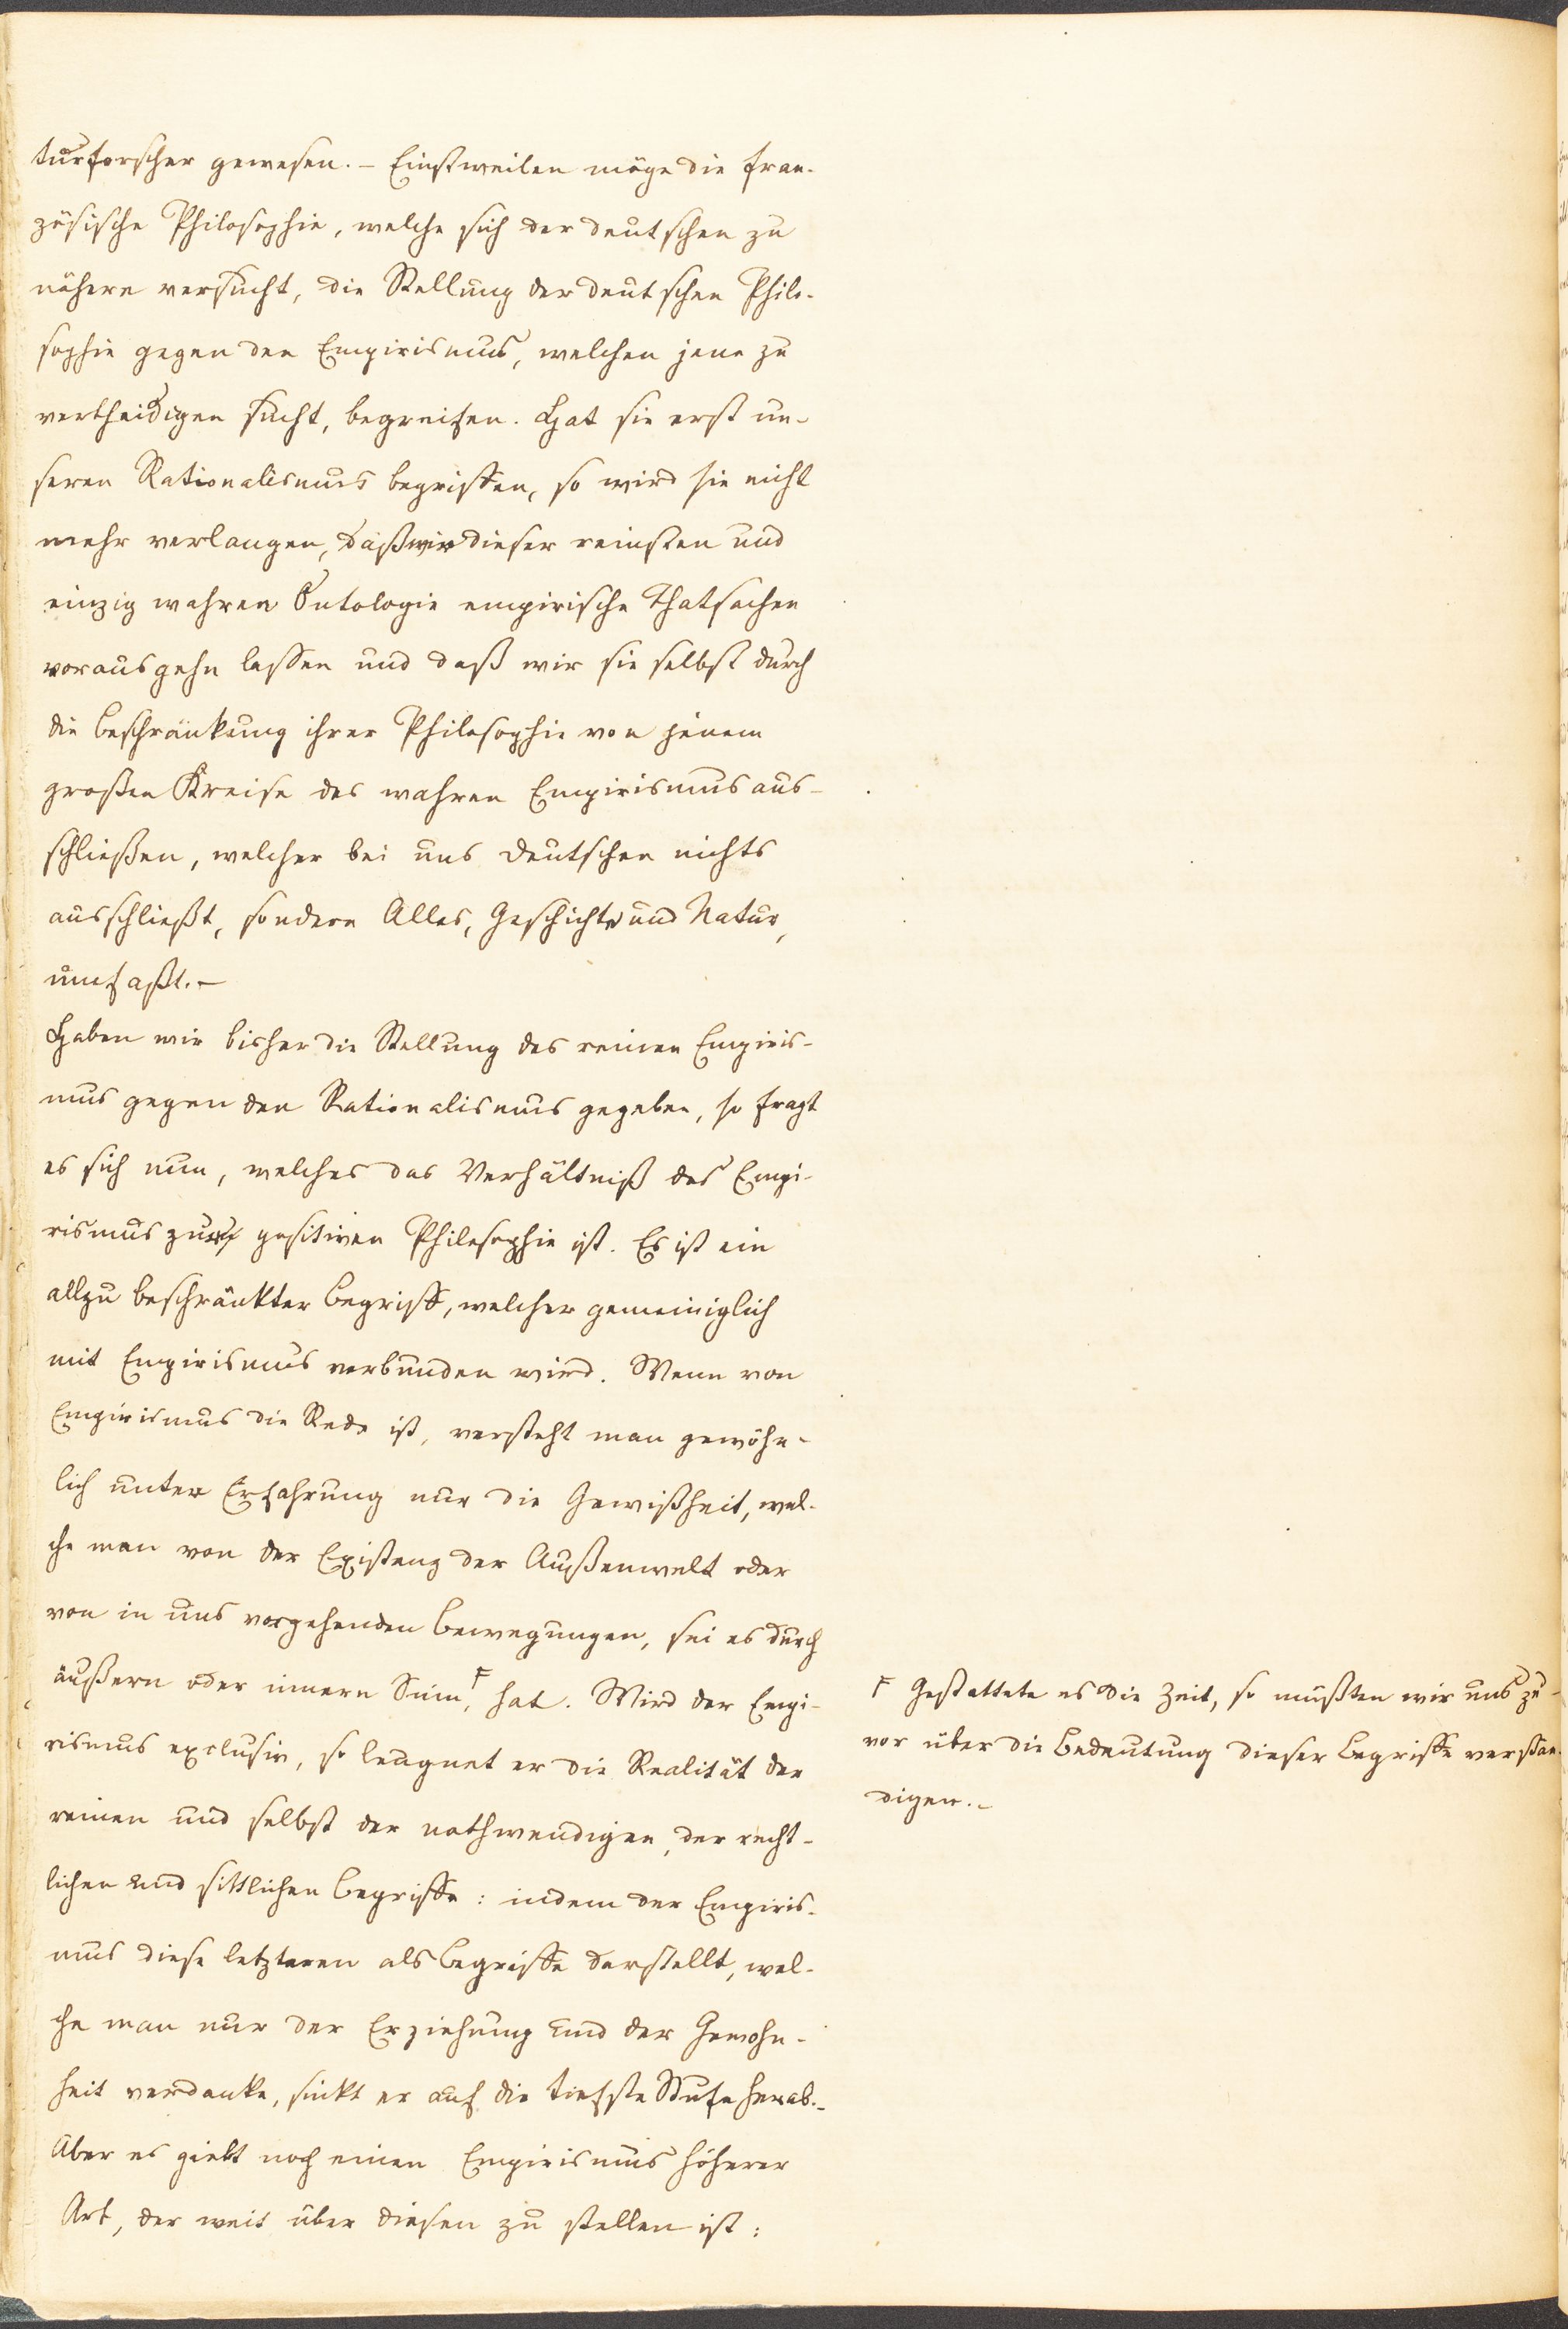 turforscher gewesen. – Einstweilen möge die fran-
zösische Philosophie, welche sich der deutschen zu
nähern versucht, die Stellung der deutschen Philo-
sophie gegen den Empirismus, welchen jene zu
vertheidigen sucht, begreifen. Hat sie erst un-
seren Rationalismus begriffen, so wird sie nicht
mehr verlangen, daß wir dieser reinsten und
einzig wahren Ontologie empirische Thatsachen
vorausgehn lassen und daß wir sie selbst durch
die Beschränkung ihrer Philosophie von jenem
großen Kreise des wahren Empirismus aus-
schließen, welcher bei uns Deutschen nichts
ausschließt, sondern Alles, Geschichte und Natur,
umfaßt. –
Haben wir bisher die Stellung des reinen Empiris-
mus gegen den Rationalismus gegeben, so fragt
es sich nun, welches das Verhältniß des Empi-
rismus zur positiven Philosophie ist. Es ist ein
allzu beschränkter Begriff, welcher gemeiniglich
mit Empirismus verbunden wird. Wenn von
Empirismus die Rede ist, versteht man gewöhn-
lich unter Erfahrung nur die Gewißheit, wel-
che man von der Existenz der Außenwelt oder
von in uns vorgehenden Bewegungen, sei es durch
äußern oder innern Sinn, F hat. Wird der Empi-
rismus exclusiv, so leugnet er die Realität der
reinen und selbst der nothwendigen, der recht-
lichen und sittlichen Begriffe: indem der Empiris-
mus diese letzteren als Begriffe darstellt, wel-
che man nur der Erziehung und der Gewohn-
heit verdanke, sinkt er auf die tiefste Stufe herab. –
Aber es giebt noch einen Empirismus höherer
Art, der weit über diesen zu stellen ist:
F Gestattete es die Zeit, so müßten wir uns zu-
vor über die Bedeutung dieser Begriffe verstän-
digen. –